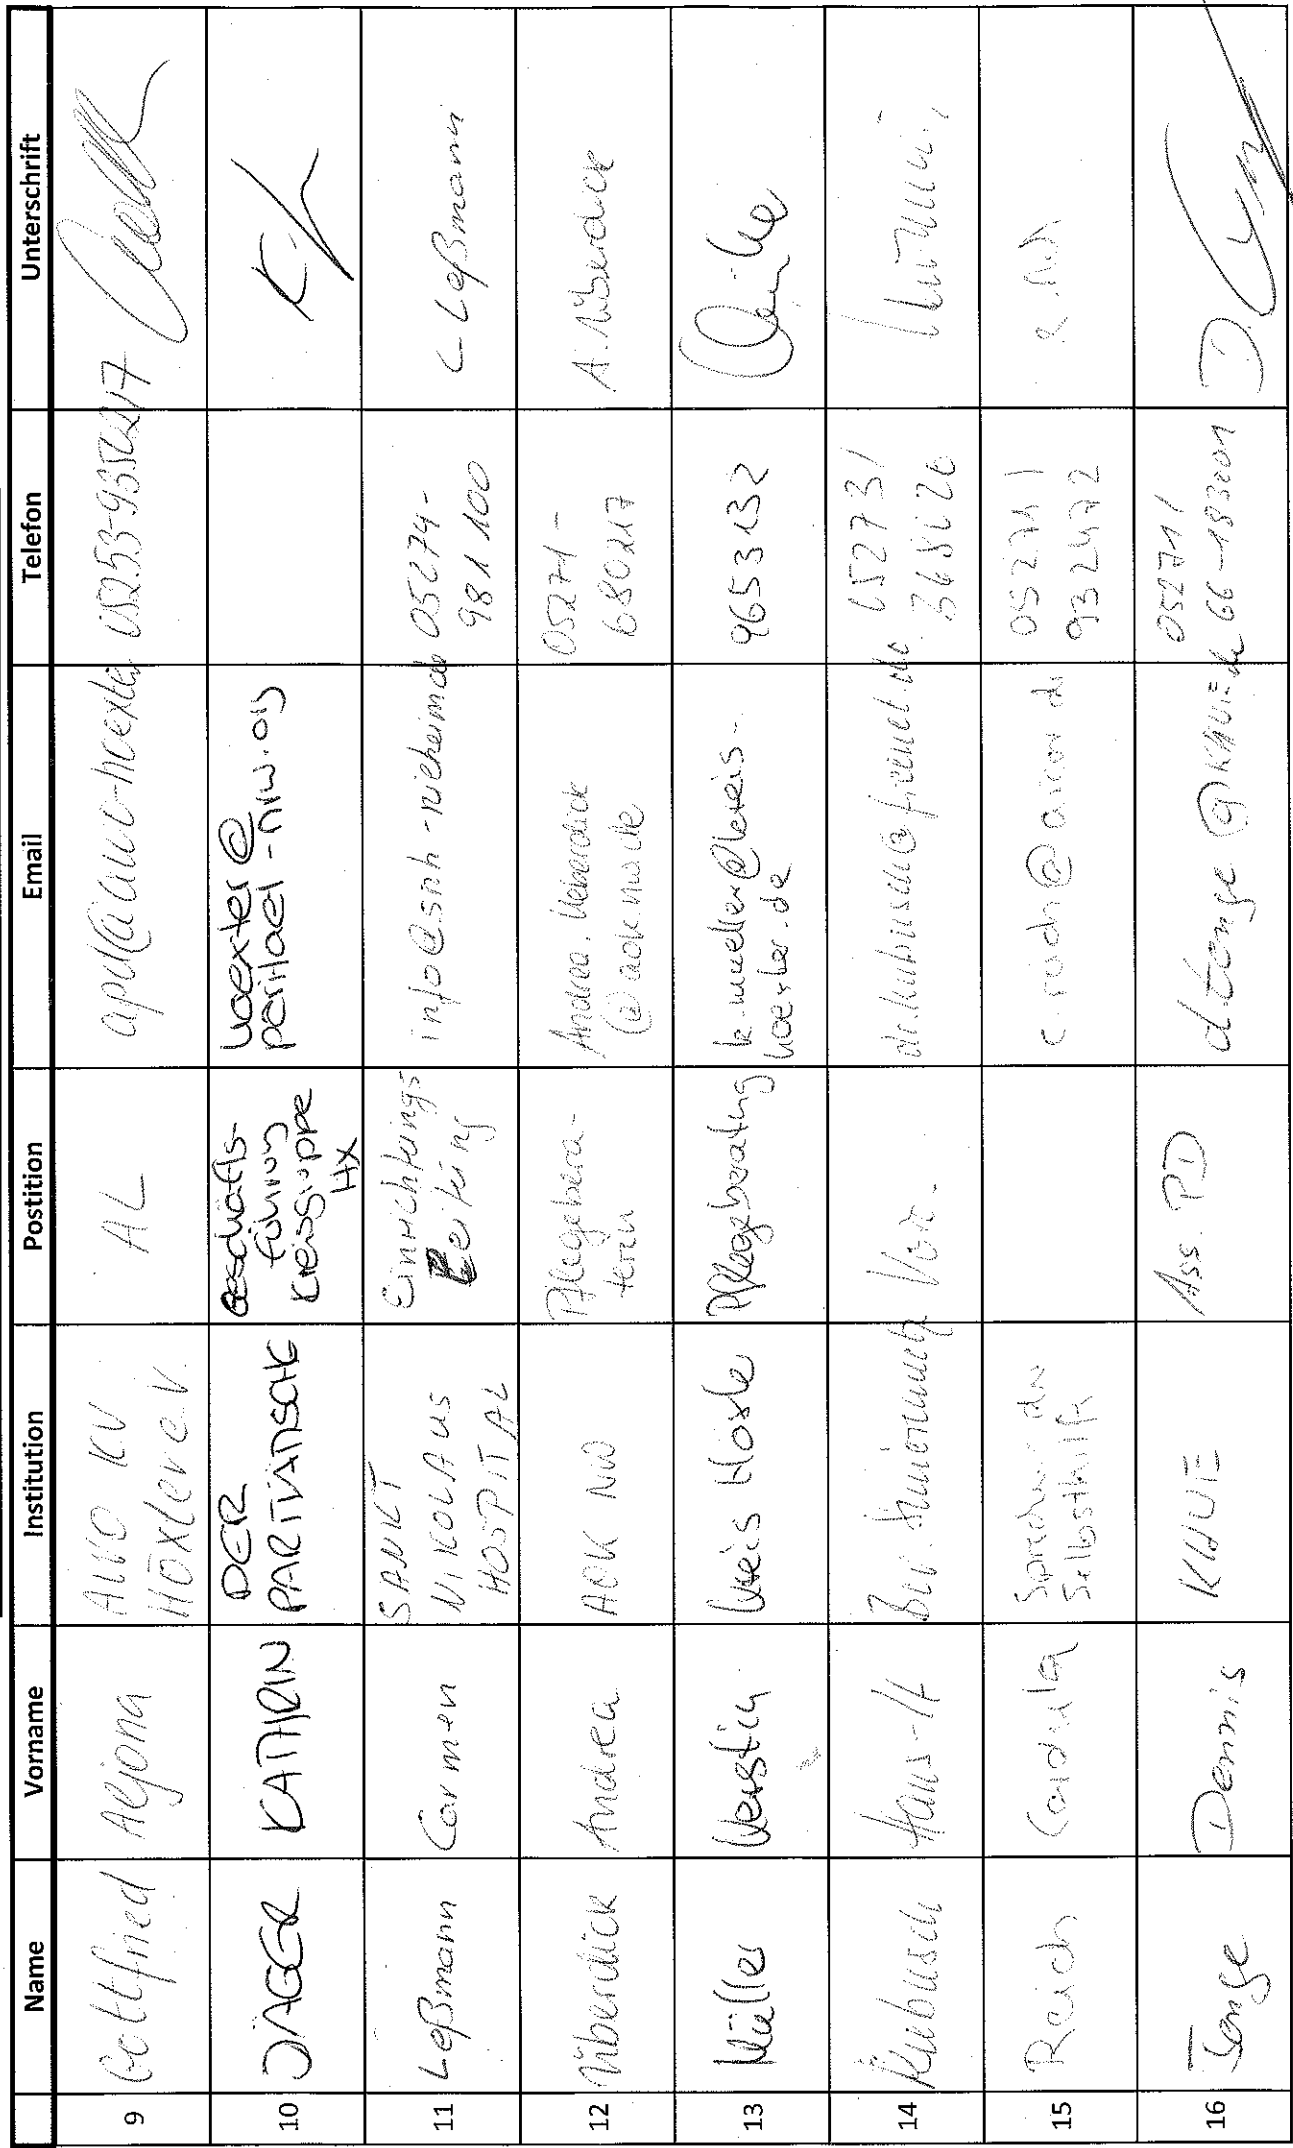 Name Vorname Institution Postition Email Telefon Unterschrift
9 Gottfried Aljona AWO KV Höxter e.V. AL 05253-9350217
10 JÄGER KATHRIN DER PARITÄTISCHE Geschäfts-
führung
Kreisgruppe
HX hoexter@
paritaet-nrw.org
11 Leßmann Carmen SANKT
NIKOLAUS
HOSPITAL Einrichtungs
Leitung info@snh-nieheim.de 05274-
981100 C. Leßmann
12 Überdick Andrea AOK NW Pflegebera-
terin Andrea.Ueberdick
@aok.nw.de 05271-
680217 A. Überdick
13 Müller Kerstin Kreis Höxter Pflegeberatung k.mueller@kreis-
hoexter.de 9653132
14 Kubusch Hans-H Vors. 05273/
15 Reich Cordula Sprecherin der
Selbsthilfe 05271/
932472
16 Tonge Dennis KHWE Ass. PD d.tonge@KHWE.de 05271/
66-183001